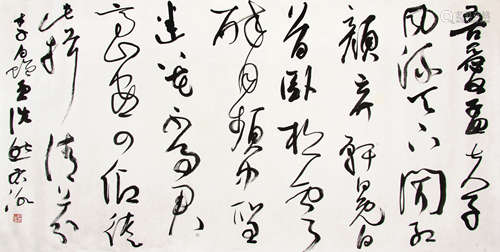 吾愛孟夫子
風流天下聞紅
顏棄軒冕白
首臥松雲
醉月頻中聖
迷花不事君
高山安可仰徒
此揖清芬
李白